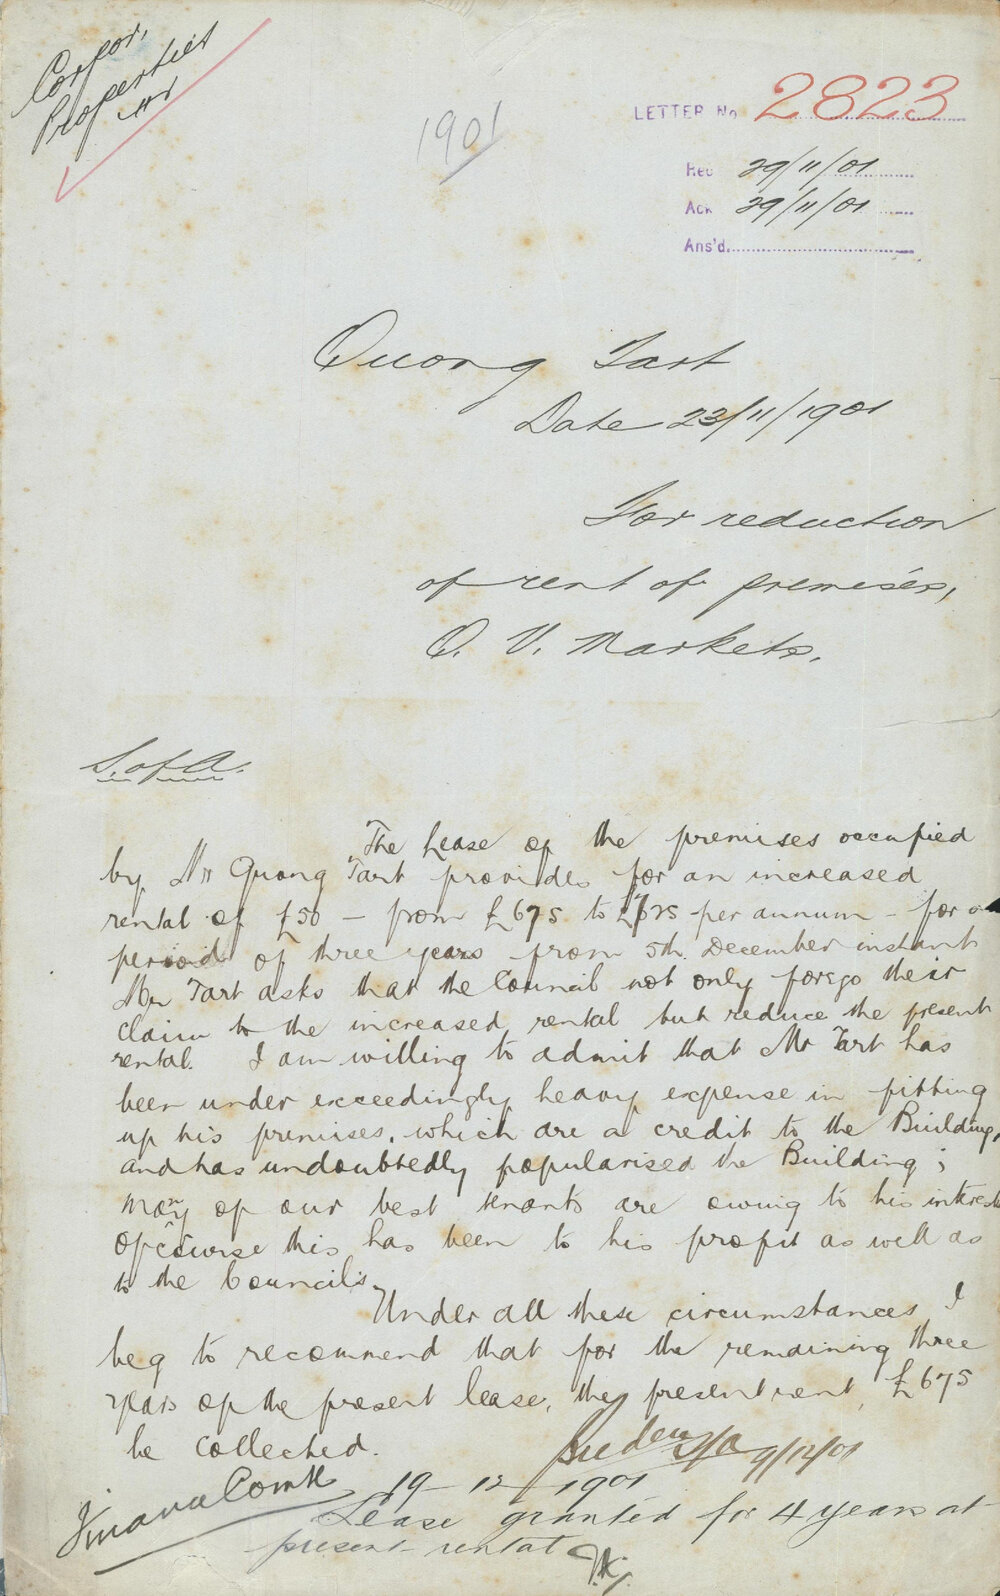 Corpor.
Properties
LETTER No 2823
1901
Rec 29/11/01
Ack 29/11/01
Ans'd.
Quong Tart
Date 23/11/1901
For reduction
of rent of premises,
Q. V. Markets.
S. of A.
The Lease of the premises occupied
by Mr Quong Tart provides for an increased
rental of £50 - from £675 to £725 per annum - for a
period of three years from 5th December instant
Mr Tart asks that the Council not only forego their
claim to the increased rental but reduce the present
rental. I am willing to admit that Mr Tart has
been under exceedingly heavy expense in fitting
up his premises, which are a credit to the Building,
and has undoubtedly popularised the Building;
many of our best tenants are owing to his interest
of course this has been to his profit as well as
to the Council's.
Under all these circumstances I
beg to recommend that for the remaining three
years of the present lease, the present rent £675
be collected.
9/12/01
Finance Comtt
19 - 12 - 1901
Lease granted for 4 years at
present rental